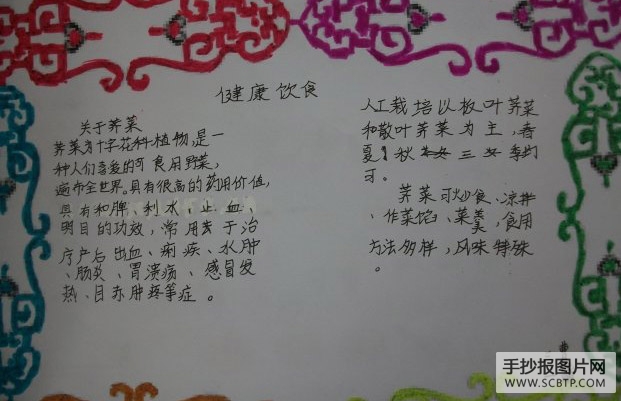 健康饮食
关于荠菜
荠菜为十字花科植物,是一
种人们喜爱的可食用野菜,
遍布全世界,具有很高的药用价值,
具有和脾、利水、止血、
明目的功效,常用于治
疗产后出血、痢疾、水肿
、肠炎、胃溃疡、感冒发
热、目赤肿疼等症。
人工栽培以板叶荠菜
和散叶荠菜为主,春
夏、秋 三 季均
可。
荠菜可炒食、凉拌
、作菜馅、菜羹,食用
方法多样,风味特殊
。
手抄报图片网
WWW.SCBTP.COM